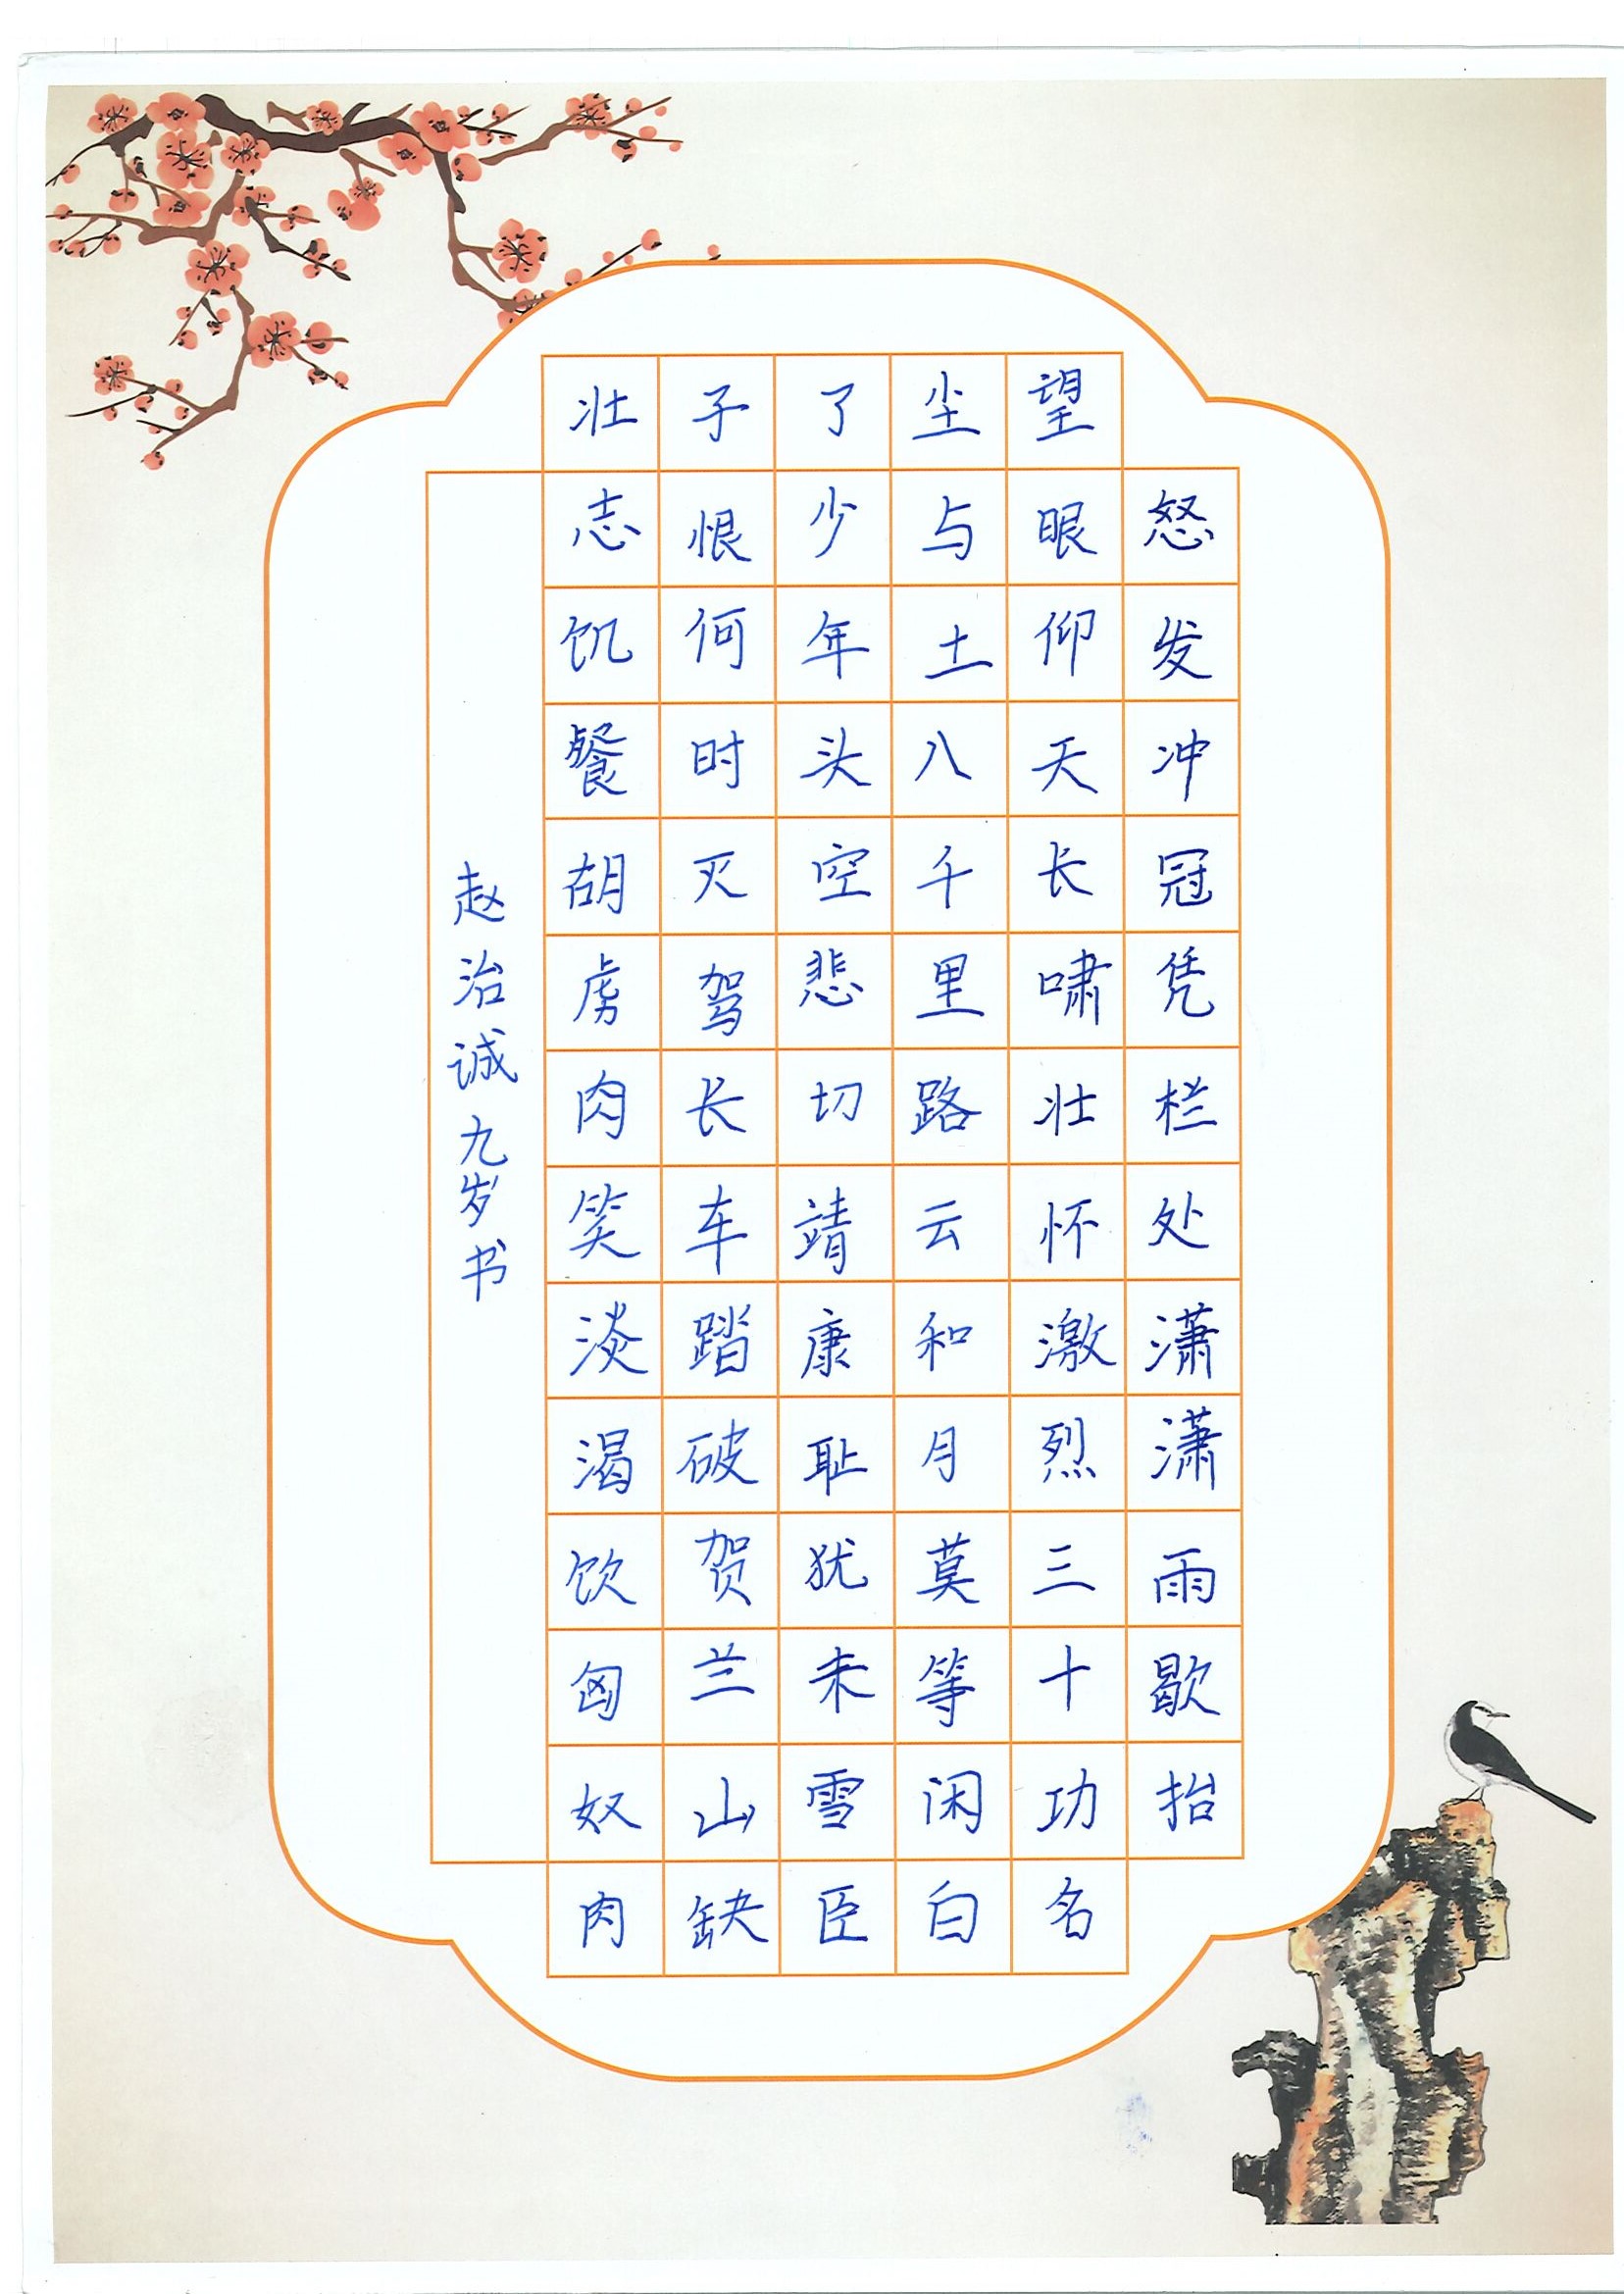 怒发冲冠凭栏处潇潇雨歇抬
望眼仰天长啸壮怀激烈三十功名
尘与土八千里路云和月莫等闲白
了少年头空悲切靖康耻犹未雪臣
子恨何时灭驾长车踏破贺兰山缺
壮志饥餐胡虏肉笑淡渴饮匈奴肉
赵治诚九岁书